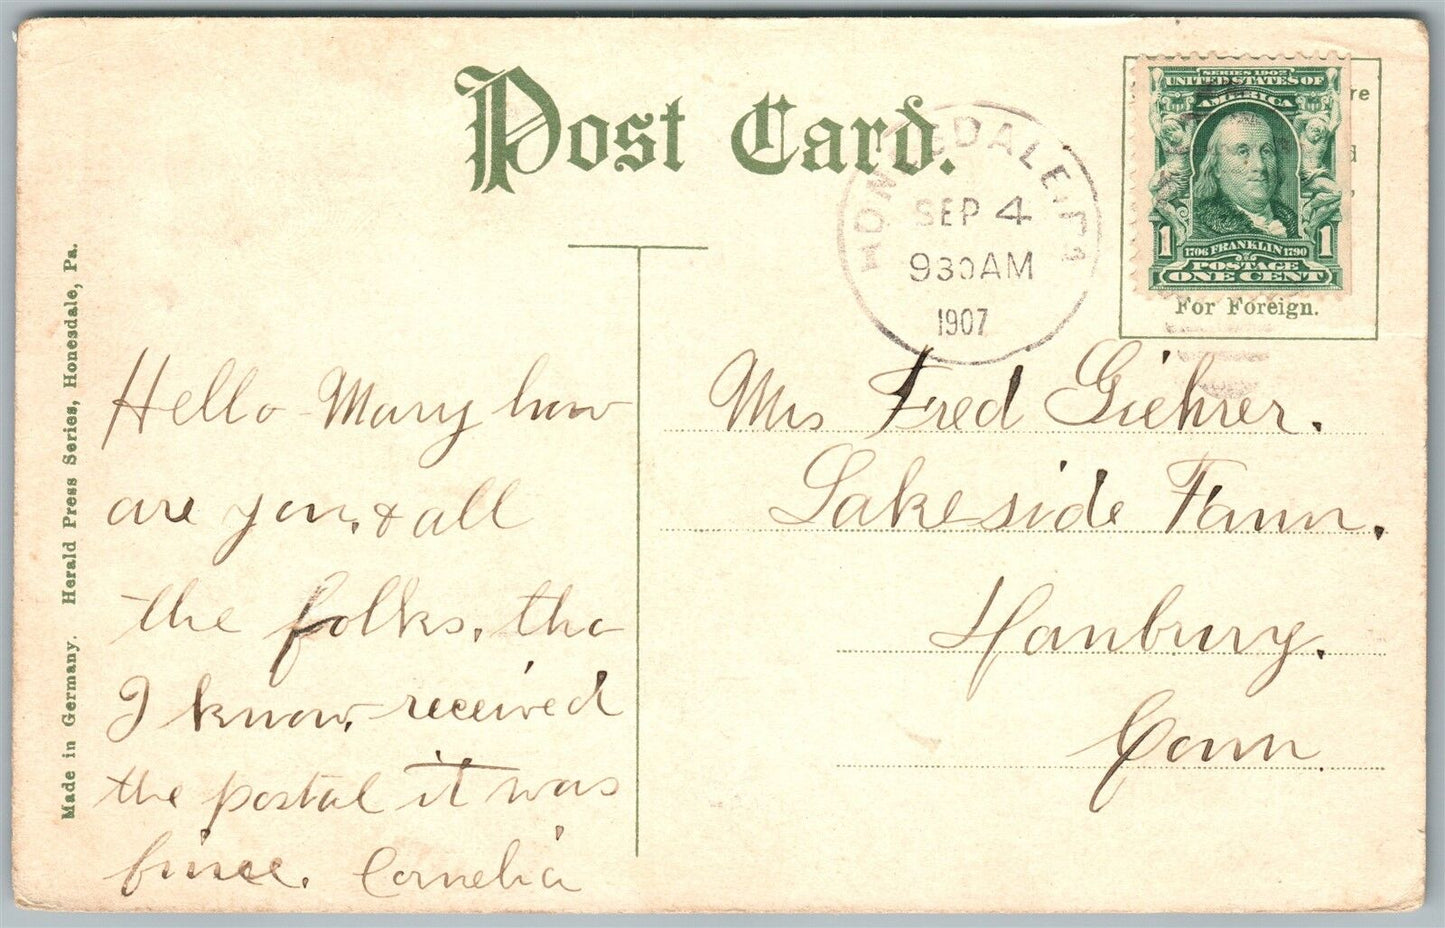 Post Card.
HONESDALE, PA
SEP 4
930AM
1907
SERIES 1902
UNITED STATES OF
AMERICA
1 1706 FRANKLIN 1790 1
POSTAGE
ONE CENT
re
d
For Foreign.
Made in Germany. Herald Press Series, Honesdale, Pa.
Hello Mary how
are you, & all
the folks, tho
I know, received
the postal it was
fine. Cornelia
Mrs Fred Giehrer.
Lakeside Farm.
Hanbury.
Conn.